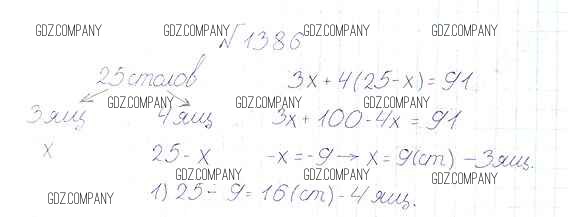 GDZ.COMPANY GDZ.COMPANY GDZ.COMPANY GDZ.COMPANY
№1386
25 столов 3x + 4(25 - x) = 91
GDZ.COMPANY GDZ.COMPANY GDZ.COMPANY
3 ящ 4 ящ 3x + 100 - 4x = 91
x 25 - x -x = -9 → x = 9(ст) - 3 ящ.
GDZ.COMPANY GDZ.COMPANY GDZ.COMPANY
1) 25 - 9 = 16(ст) - 4 ящ.
GDZ.COMPANY